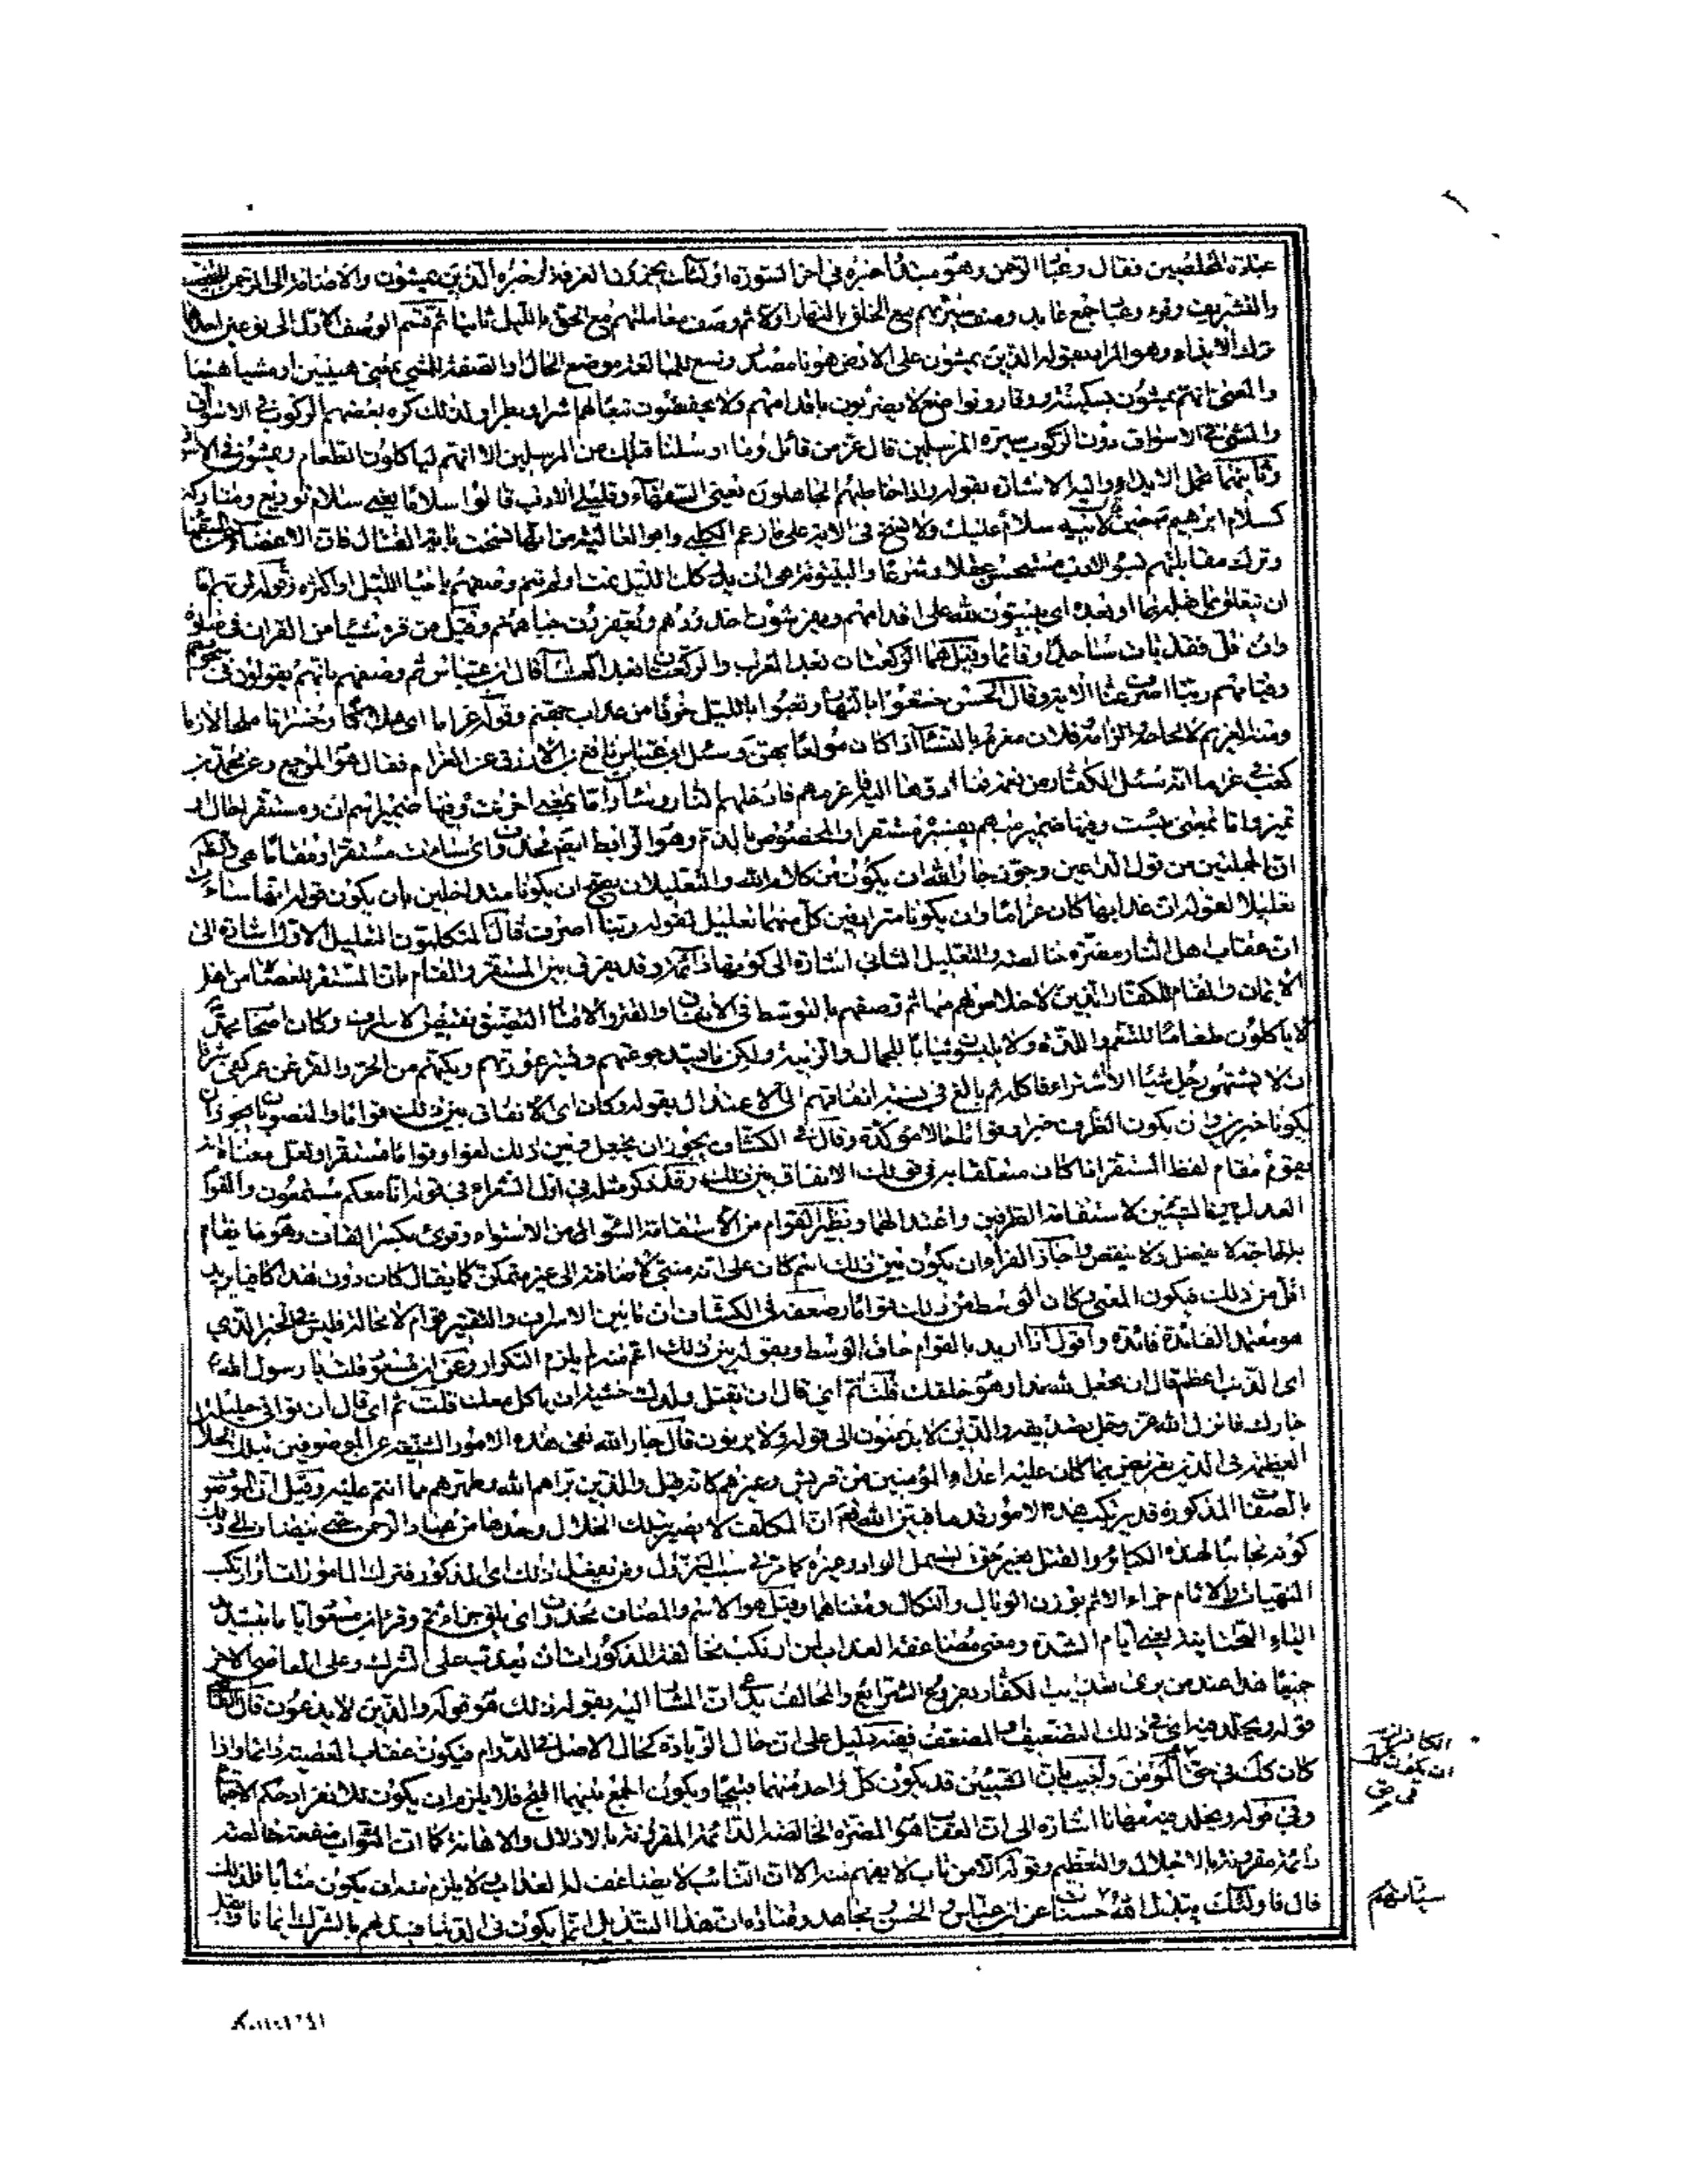 عباده المخلصين فقال وعباد الرحمن وهو مبتدأ خبره في آخر السورة اولئك يجزون الغرفة او خبره الذين يمشون والاضافة الى الرحمن للتخصيص
والتشريف وقرء وعباد جمع عابد وصف سيرتهم مع الخلق بالنهار اولا ثم وصف معاملتهم مع الحق بالليل ثانيا ثم قسم الوصف الاول الى نوعين احدهما
ترك الايذاء وهو المراد بقوله الذين يمشون على الارض هونا مصدر وضع للمبالغة موضع الحال او الصفة للمشي بمعنى هينين او مشيا هينا
والمعنى انهم يمشون بسكينة ووقار وتواضع لا يضربون باقدامهم ولا يخفقون نعالهم اشرا وبطرا ولذلك كره بعضهم الركوب في الاسواق
والمشي في الاسواق دون الركوب سيرة المرسلين قال عز من قائل وما ارسلنا قبلك من المرسلين الا انهم ليأكلون الطعام ويمشون في الاسواق
وثانيهما تحمل الايذاء واليه الاشارة بقوله واذا خاطبهم الجاهلون يعني السفهاء وقليلي الادب قالوا سلاما يعني سلام توديع ومتاركة
كسلام ابرهيم لابيه سلام عليك ولا نسخ في الاية على ما زعم الكلبي وابو العالية من انها نسخت باية القتال فان الاغضاء عن السفهاء
وترك مقابلتهم بسوء الادب مستحسن عقلا وشرعا والبيتوتة هي ان يدركك الليل نمت او لم تنم وصفهم باحياء الليل او اكثره وقوله لربهم اما
ان يتعلق بما قبله او بما بعده اي يبيتون لله على اقدامهم ويفرشون خدودهم ويعفرون جباههم وقيل من قرء شيئا من القران في صلوة
وان قل فقد بات ساجدا وقائما وقيل هما الركعتان بعد المغرب والركعتان بعد العشاء قال ابن عباس ثم وصفهم بانهم يقولون في سجودهم
وقيامهم ربنا اصرف عنا الاية وقال الحسن خشعوا بالنهار وتعبوا بالليل خوفا من عذاب جهنم وقوله غراما اي هلاكا وخسرانا ملحا لازما
ومنه الغريم لالحاحه والزامه فلان مغرم بالنساء اذا كان مولعا بهن وسئل ابن عباس نافع بن الازرق عن الغرام فقال هو الموجع وعن محمد بن
كعب في غراما انه سئل الكفار من نعمه فما ادوها اليه فاغرمهم فادخلهم النار وساءت اما بمعنى احزنت وفيها ضمير اسم ان ومستقرا حال او
تميز واما بمعنى بئست وفيها ضمير مبهم يفسره مستقرا والمخصوص بالذم وهو الرابط ايضا محذوف اي ساءت مستقرا ومقاما هي ثم انهم
ان الجملتين من قول الداعين وجوز جار الله ان يكون من كلام الله والتعليلان يصح ان يكونا متداخلين بان يكون قوله انها ساءت
تعليلا لقوله ان عذابها كان غراما وان يكونا مترادفين كل منهما تعليل لقوله ربنا اصرف قال المتكلمون التعليل الاول اشارة الى
ان عقاب اهل النار مضرة خالصة والتعليل الثاني اشارة الى كونها دائمة وقد يفرق بين المستقر والمقام بان المستقر للعصاة من اهل
الايمان والمقام للكفار الذين لا خلاص لهم منها ثم وصفهم بالتوسط في الانفاق والقتر والاقتار التضييق نقيض الاسراف وكان اصحاب محمد
لا يأكلون طعاما للتنعم واللذة ولا يلبسون ثيابا للجمال والزينة ولكن ما يسد جوعتهم ويستر عورتهم ويكنهم من الحر والقر عن عمر كفى شرفا
ان لا يشتهي رجل شيئا الا اشتراه فاكله ثم بالغ في تفسير انفاقهم الى الاعتدال بقوله وكان اي الانفاق بين ذلك قواما والمنصوبان يجوز ان
يكونا خبرين وان يكون الظرف خبرا وقواما حالا مؤكدة وقال في الكشاف يجوز ان يجعل بين ذلك لغوا وقواما مستقرا ولعل معناه انه
يقوم مقام لفظ المستقر اذا كان متعلقا به في ذلك الانفاق بين ذلك وقد ذكر مثله في اول الشعراء في قوله انا معكم مستمعون والقوام
العدل بين الشيئين لاستقامة الطرفين واعتدالهما ونظير القوام من الاستقامة السواء من الاستواء وقرئ بكسر القاف وهو ما يقام
به الحاجة لا يفضل ولا ينقص واجاز الفراء ان يكون بين ذلك اسم كان على انه مبني لاضافته الى غير متمكن كما يقال كان دون هذا كافيا يريد
اقل من ذلك فيكون المعنى وكان الوسط من ذلك قواما وضعفه في الكشاف ان ما بين الاسراف والتقتير قوام لا محالة فليس في الخبر الذي
هو معتمد الفائدة فائدة واقول اذا اريد بالقوام حاق الوسط وبقوله بين ذلك اعم منه لم يلزم التكرار وعن ابن مسعود قلت يا رسول الله
اي الذنب اعظم قال ان تجعل لله ندا وهو خلقك قلت ثم اي قال ان تقتل ولدك خشية ان يأكل معك قلت ثم اي قال ان تزاني حليلة
جارك فانزل الله عز وجل تصديقه والذين لا يدعون الى قوله ولا يزنون قال جار الله نفى هذه الامور الشنيعة عن الموصوفين بتلك الخلال
العظيمة في الدين تعريض بما كان عليه اعداء المؤمنين من قريش وغيرهم كانه قيل والذين براهم الله وطهرهم مما انتم عليه وقيل ان الموصوف
بالصفات المذكورة قد يرتكب هذه الامور تدينا فبين الله تعالى ان المكلف لا يصير بتلك الخلال وحدها من عباد الرحمن حتى ينضاف الى ذلك
كونه مجانبا لهذه الكبائر والقتل بغير حق يشمل الوأد وغيره كما مر في سبب النزول ومن يفعل ذلك اي المذكور من ترك المامورات او ارتكب
المنهيات والاثام جزاء الاثم بوزن الوبال والنكال ومعناهما وقيل هو الاثم والمضاف محذوف اي يلق جزاء اثم وقرء ابن مسعود اياما بتشديد
الياء التحتانية يعني ايام الشدة ومعنى مضاعفة العذاب لمن ارتكب مخالفة المذكورات ان يعذب على الشرك وعلى المعاصي الاخر
جميعا هذا عند من يرى تعذيب الكفار بفروع الشرائع والمخالف يدعي ان المشار اليه بقوله ذلك هو قوله والذين لا يدعون قال القاضي
قوله ويخلد فيه اي في ذلك التضعيف او المضعف ففيه دليل على ان حال الزيادة كحال الاصل في الدوام فيكون عقاب المعصية دائما واذا
كان كذلك في حق المؤمن واجيب بان الشيئين قد يكون كل واحد منهما قبيحا ويكون الجمع بينهما اقبح فلا يلزم ان يكون للانفراد حكم الاجتماع
وفي قوله ويخلد فيه مهانا اشارة الى ان العقاب هو المضرة الخالصة الدائمة المقرونة بالاذلال والاهانة كما ان الثواب منفعة خالصة
دائمة مقرونة بالاجلال والتعظيم وقوله الا من تاب لا يفهم منه الا ان التائب لا يضاعف له العذاب ولا يلزم منه ان يكون مثابا فلذلك
قال فاولئك يبدل الله حسنات عن ابن عباس والحسن ومجاهد وقتادة ان هذا التبديل انما يكون في الدنيا فيبدلهم بالشرك ايمانا وبقتل
الكافر
ان يكون
في حق
سيئاتهم